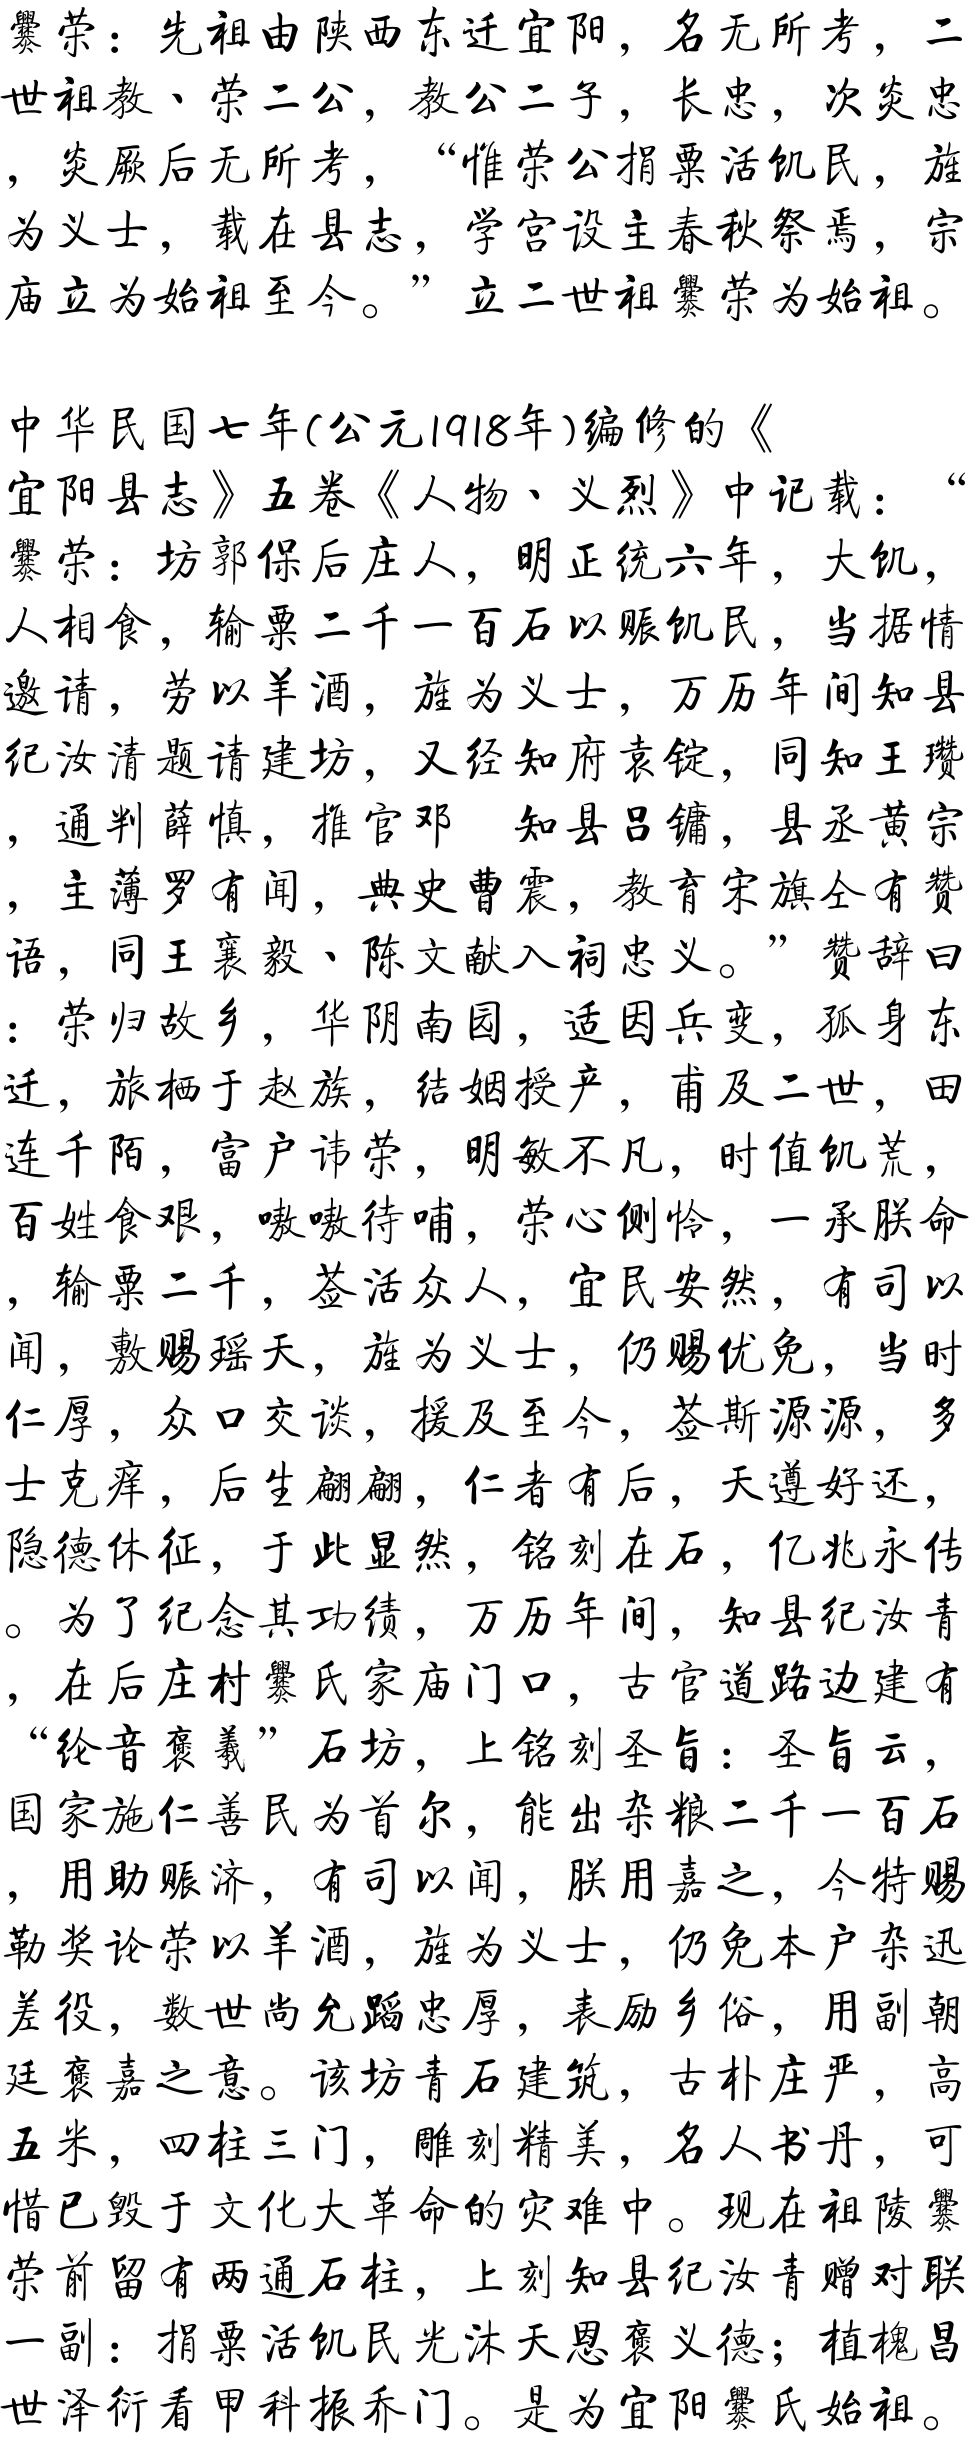 爨荣：先祖由陕西东迁宜阳，名无所考，二
世祖教、荣二公，教公二子，长忠，次炎忠
，炎厥后无所考，“惟荣公捐粟活饥民，旌
为义士，载在县志，学宫设主春秋祭焉，宗
庙立为始祖至今。”立二世祖爨荣为始祖。
中华民国七年(公元1918年)编修的《
宜阳县志》五卷《人物、义烈》中记载：“
爨荣：坊郭保后庄人，明正统六年，大饥，
人相食，输粟二千一百石以赈饥民，当据情
邀请，劳以羊酒，旌为义士，万历年间知县
纪汝清题请建坊，又经知府袁锭，同知王瓒
，通判薛慎，推官邓　知县吕镛，县丞黄宗
，主薄罗有闻，典史曹震，教育宋旗仝有赞
语，同王襄毅、陈文献入祠忠义。”赞辞曰
：荣归故乡，华阴南园，适因兵变，孤身东
迁，旅栖于赵族，结姻授产，甫及二世，田
连千陌，富户讳荣，明敏不凡，时值饥荒，
百姓食艰，嗷嗷待哺，荣心侧怜，一承朕命
，输粟二千，签活众人，宜民安然，有司以
闻，敷赐瑶天，旌为义士，仍赐优免，当时
仁厚，众口交谈，援及至今，签斯源源，多
士克痒，后生翩翩，仁者有后，天遵好还，
隐德休征，于此显然，铭刻在石，亿兆永传
。为了纪念其功绩，万历年间，知县纪汝青
，在后庄村爨氏家庙门口，古官道路边建有
“纶音褒羲”石坊，上铭刻圣旨：圣旨云，
国家施仁善民为首尔，能出杂粮二千一百石
，用助赈济，有司以闻，朕用嘉之，今特赐
勒奖论荣以羊酒，旌为义士，仍免本户杂迅
差役，数世尚允蹈忠厚，表励乡俗，用副朝
廷褒嘉之意。该坊青石建筑，古朴庄严，高
五米，四柱三门，雕刻精美，名人书丹，可
惜已毁于文化大革命的灾难中。现在祖陵爨
荣前留有两通石柱，上刻知县纪汝青赠对联
一副：捐粟活饥民光沐天恩褒义德；植槐昌
世泽衍看甲科振乔门。是为宜阳爨氏始祖。